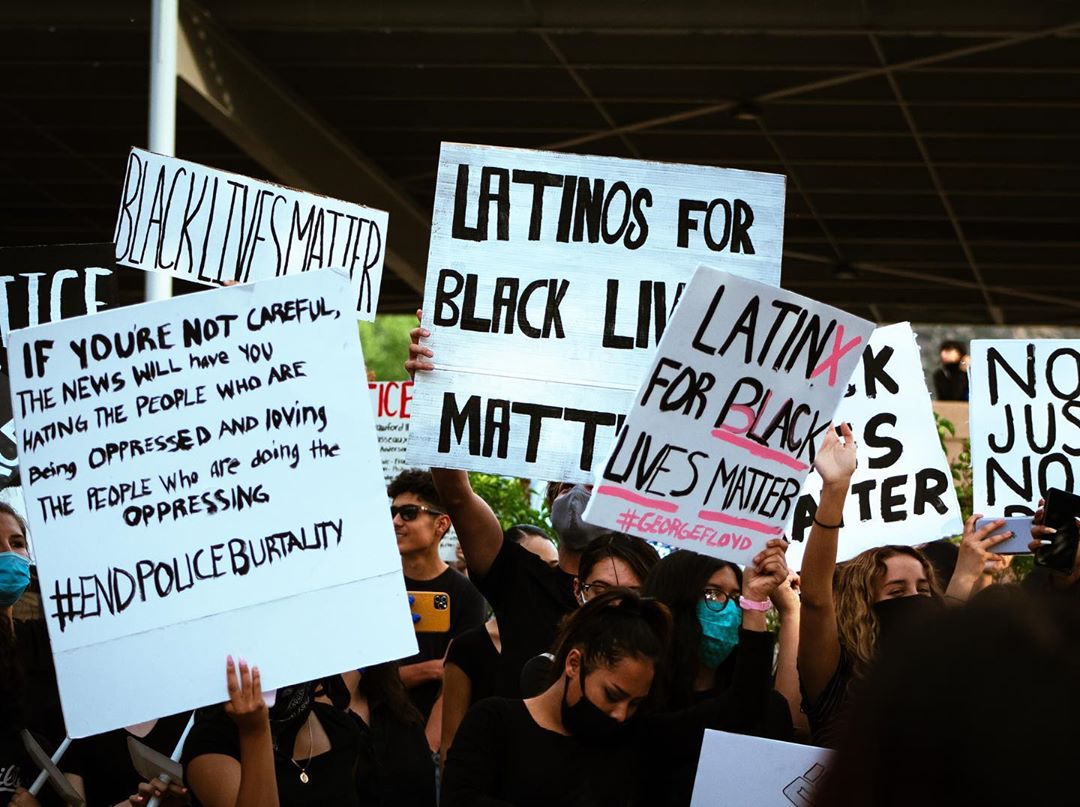 BLACK LIVES MATTER
TICE
IF YOU'RE NOT CAREFUL,
THE NEWS WILL have YOU
HATING THE PEOPLE WHO ARE
Being OPPRESSED AND loving
THE PEOPLE Who Are doing the
OPPRESSING
#ENDPOLICEBURTALITY
LATINOS FOR
BLACK LIV
MATT
ICE
LATINX
FOR BLACK
LIVES MATTER
#GEORGEFLOYD
CK
ES
ATTER
NO
JUS
NO